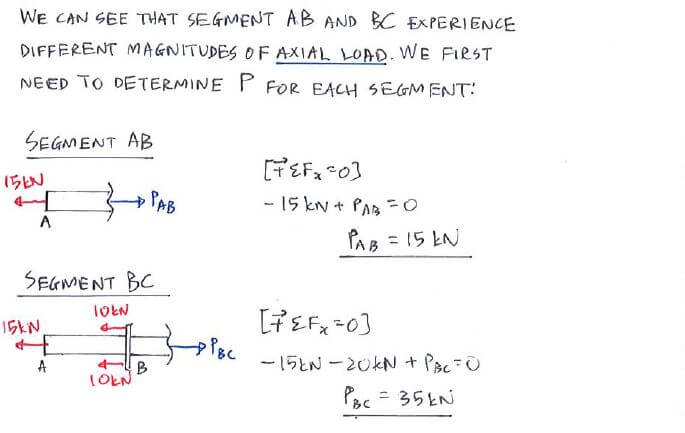 WE CAN SEE THAT SEGMENT AB AND BC EXPERIENCE
DIFFERENT MAGNITUDES OF AXIAL LOAD. WE FIRST
NEED TO DETERMINE P FOR EACH SEGMENT:
SEGMENT AB
15kN
A
PAB
[+→ ΣFx=0]
-15kN + PAB = 0
PAB = 15 kN
SEGMENT BC
10kN
15kN
A
B
PBC
10kN
[+→ ΣFx=0]
-15kN -20kN + PBC=0
PBC = 35kN